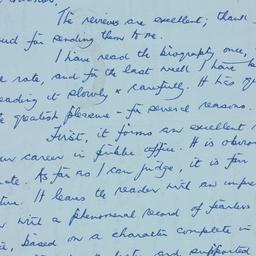 The reviews are excellent; thank
for sending them to me.
I have read the biography once,
rate, and for the last week I have
reading it slowly & carefully. It has
greatest pleasure - for several reasons.
First, it forms an excellent
career in public office. It is
As far as I can judge, it is fair
It leaves the reader with an
with a phenomenal record of fearless
based on a character complete in
and supported